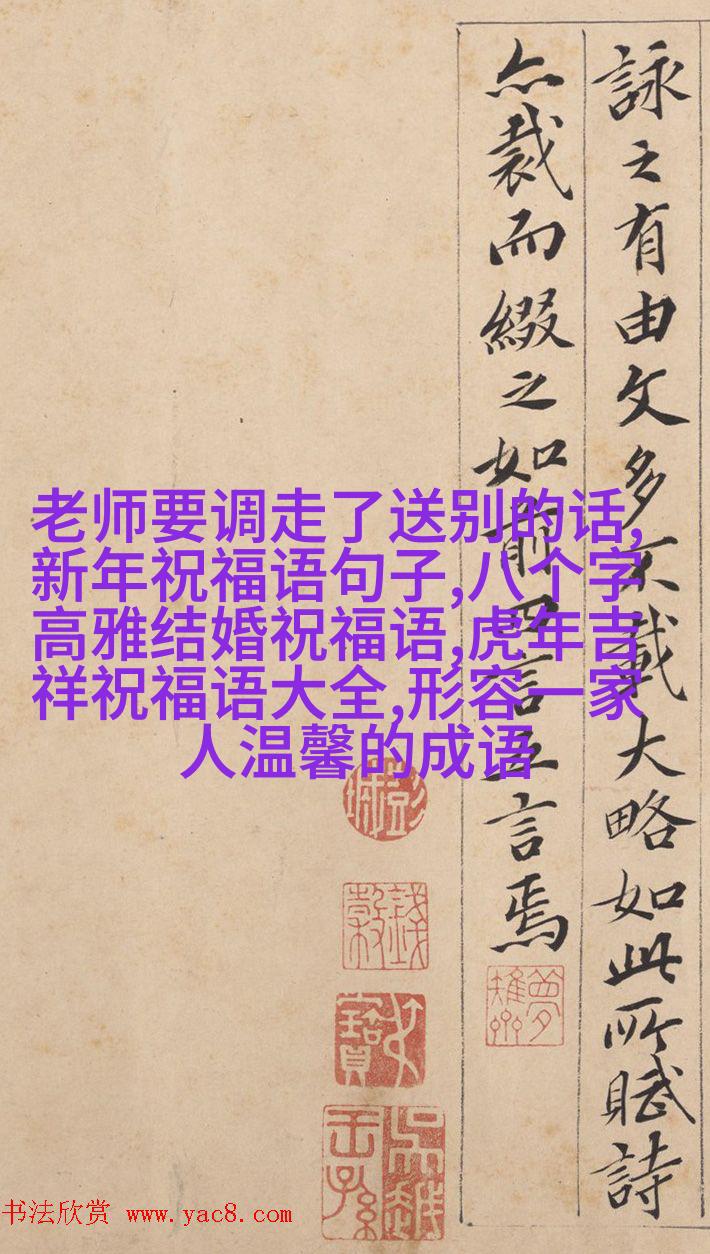 詠之有由文多不載大略如此所賦詩
亦裁而綴之如前四言五言焉
老师要调走了送别的话,
新年祝福语句子,八个字
高雅结婚祝福语,虎年吉
祥祝福语大全,形容一家
人温馨的成语
书法欣赏 www.yac8.com